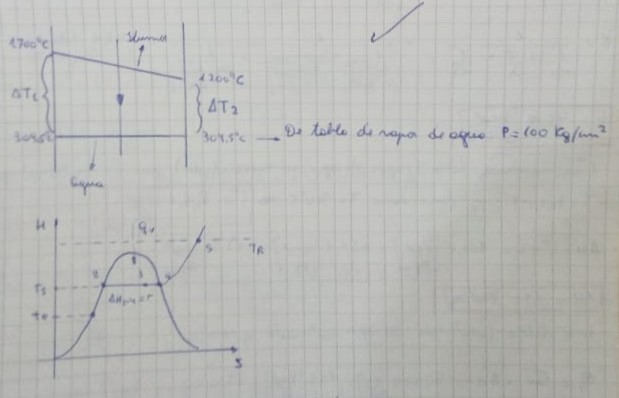 1700°C
Humos
1200°C
ΔT1
ΔT2
309.5°C
309.5°C → De tabla de vapor de agua P=100 Kg/cm²
Agua
H
qv
5
TR
2
3
4
Ts
ΔH2-4 = r
te
S